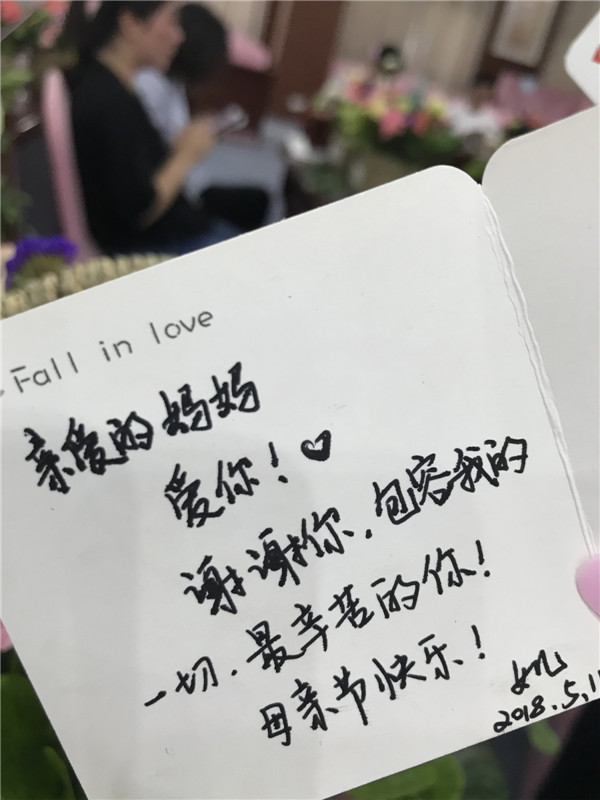 Fall in love
亲爱的妈妈
爱你!
谢谢你.包容我的
一切.最辛苦的你!
母亲节快乐!
2018.5.1